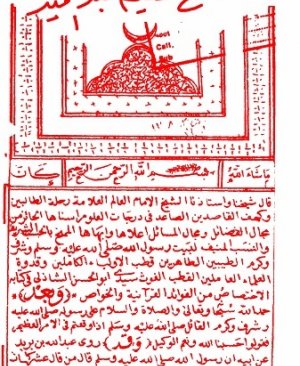 Coll.
ما شاء الله
بسم الله الرحمن الرحيم
كان
قال شيخنا واستاذنا الشيخ الامام العالم العلامة رحلة الطالبين
وكهف القاصدين الصاعد في درجات العلوم اسناها الحائز من
مجال الفضائل ومجال المسائل اعلاها وابهاها
والنسب المنيف لبيت رسول الله صلى الله عليه وسلم وشرف
وكرم الطيبين الطاهرين قطب الاولياء الكاملين وقدوة
العلماء العاملين القطب الغوث سيدي ابو الحسن الشاذلي في كتابه
الاختصاص من الفوائد القرآنية والخواص (وبعد)
حمد الله سبحانه وتعالى والصلاة والسلام على رسوله صلى الله عليه
وشرف وكرم القائل صلى الله عليه وسلم اذا وقعتم في الامر العظيم
فقولوا حسبنا الله ونعم الوكيل (وقد) روى عبد الله بن بريد
عن ابيه ان رسول الله صلى الله عليه وسلم قال من قال عشر كلمات